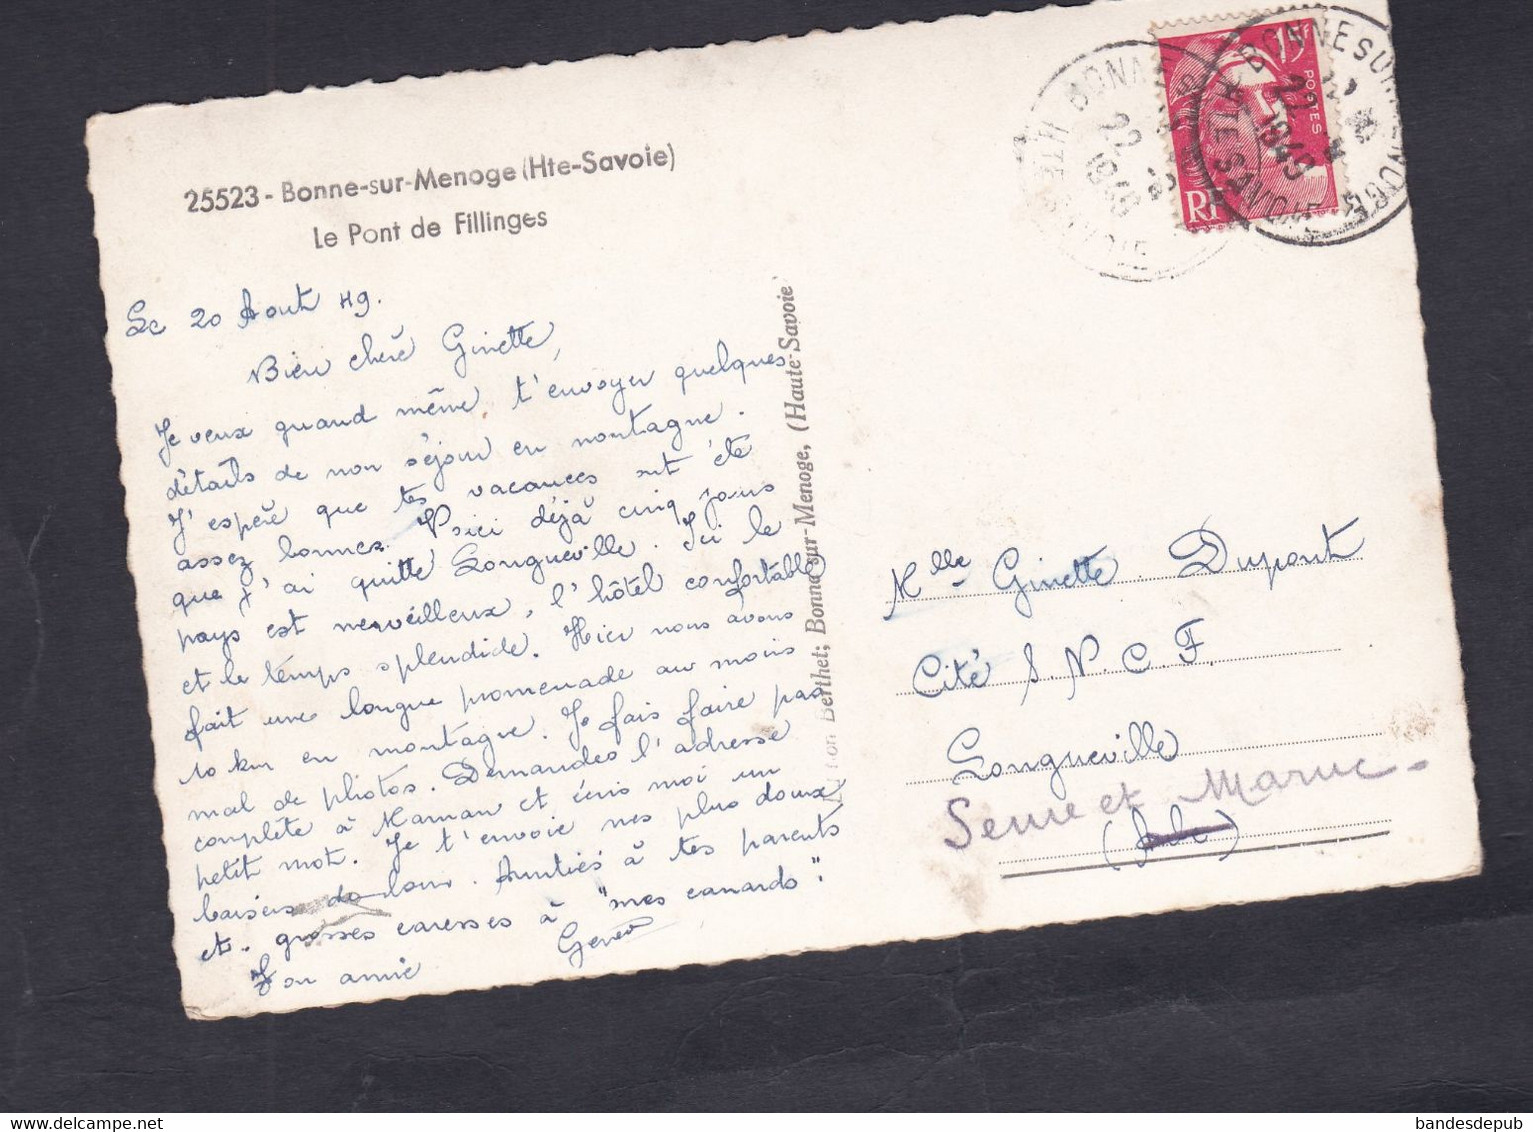 25523 - Bonne-sur-Menoge (Hte-Savoie)
Le Pont de Fillinges
Le 20 Aout 49.
Bien chère Ginette,
Je veux quand même t'envoyer quelques
détails de mon séjour en montagne.
J'espère que tes vacances ont été
assez bonnes. Voici déjà cinq jours
que j'ai quitté Longueville. Ici le
pays est merveilleux, l'hôtel confortable
et le temps splendide. Hier nous avons
fait une longue promenade au moins
10 km en montagne. Je fais faire pas
mal de photos. Demandes l'adresse
complète à Maman et écris moi un
petit mot. Je t'envoie mes plus doux
baisers de loin. Amitiés à tes parents
et grosses caresses à "mes canards".
Ton amie
Edition Berthet; Bonne-sur-Menoge, (Haute-Savoie)
15F
POSTES
RF
BONNE SUR MENOGE
22
1949
HTE SAVOIE
BONNE
22
1949
HTE SAVOIE
Mlle Ginette Dupont
Cité S.N.C.F.
Longueville
Seine et Marne
bandesdepub